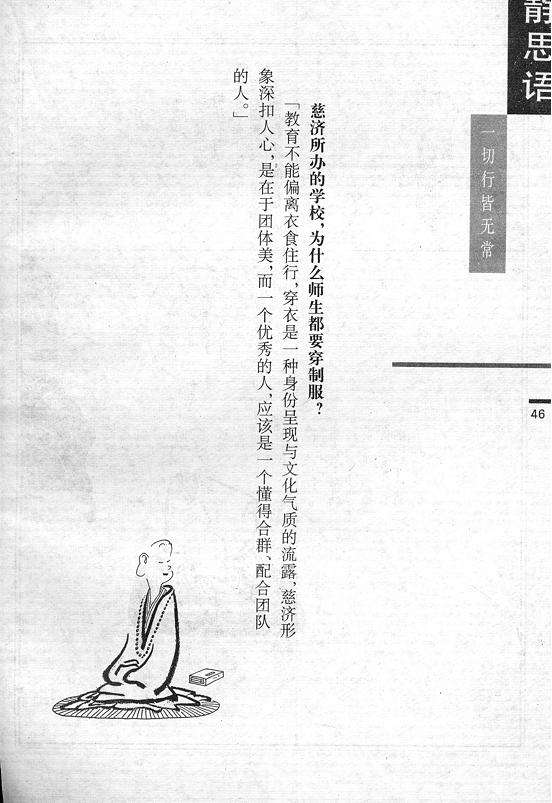 静思语
一切行皆无常
46
慈济所办的学校,为什么师生都要穿制服?
「教育不能偏离衣食住行,穿衣是一种身份呈现与文化气质的流露,慈济形
象深扣人心,是在于团体美,而一个优秀的人,应该是一个懂得合群、配合团队
的人。」